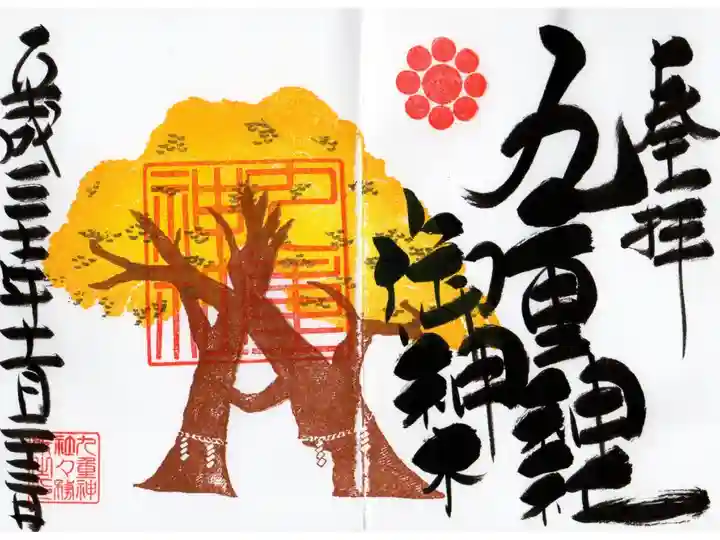 奉拝
九重神社
御神木
九重神社
平成三十年十一月
九重神
社々務
所之印